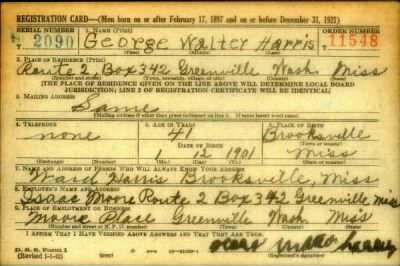 REGISTRATION CARD—(Men born on or after February 17, 1897 and on or before December 31, 1921)
SERIAL NUMBER 1. NAME (Print) ORDER NUMBER
T 2090 George Walter Harris 11548
2. PLACE OF RESIDENCE (Print)
Route 2 Box 342 Greenville Wash. Miss
(THE PLACE OF RESIDENCE GIVEN ON THE LINE ABOVE WILL DETERMINE LOCAL BOARD
JURISDICTION; LINE 2 OF REGISTRATION CERTIFICATE WILL BE IDENTICAL)
3. MAILING ADDRESS
Same
(Mailing address if other than place indicated on line 2. If same insert word same)
4. TELEPHONE 5. AGE IN YEARS 6. PLACE OF BIRTH
none 41 Brooksville
DATE OF BIRTH
1 12 1901 Miss
(Exchange) (Number) (Mo.) (Day) (Yr.) (State or country)
7. NAME AND ADDRESS OF PERSON WHO WILL ALWAYS KNOW YOUR ADDRESS
Ward Harris Brooksville, Miss
8. EMPLOYER'S NAME AND ADDRESS
Isaac Moore Route 2 Box 342 Greenville Miss
9. PLACE OF EMPLOYMENT OR BUSINESS
Moore Place Greenville Wash. Miss
(Number and street or R. F. D. number) (Town) (County) (State)
I AFFIRM THAT I HAVE VERIFIED ABOVE ANSWERS AND THAT THEY ARE TRUE.
D. S. S. Form 1
(Revised 1-1-42) (over)